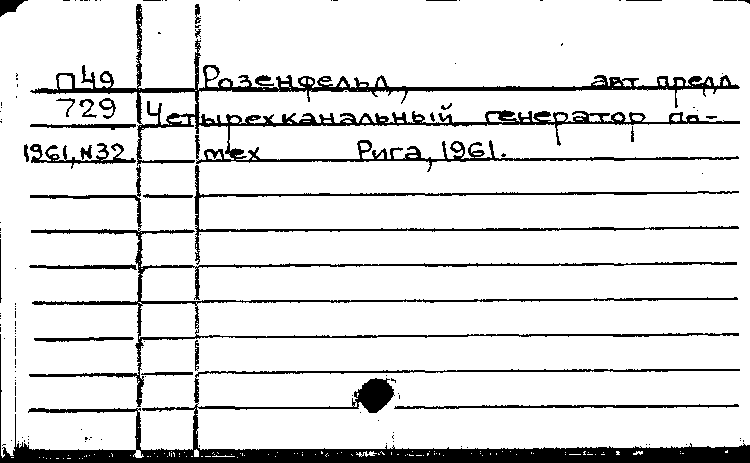 П49 Розенфельд, авт предл
729 Четырехканальный генератор по-
1961, N32 тех Рига, 1961.